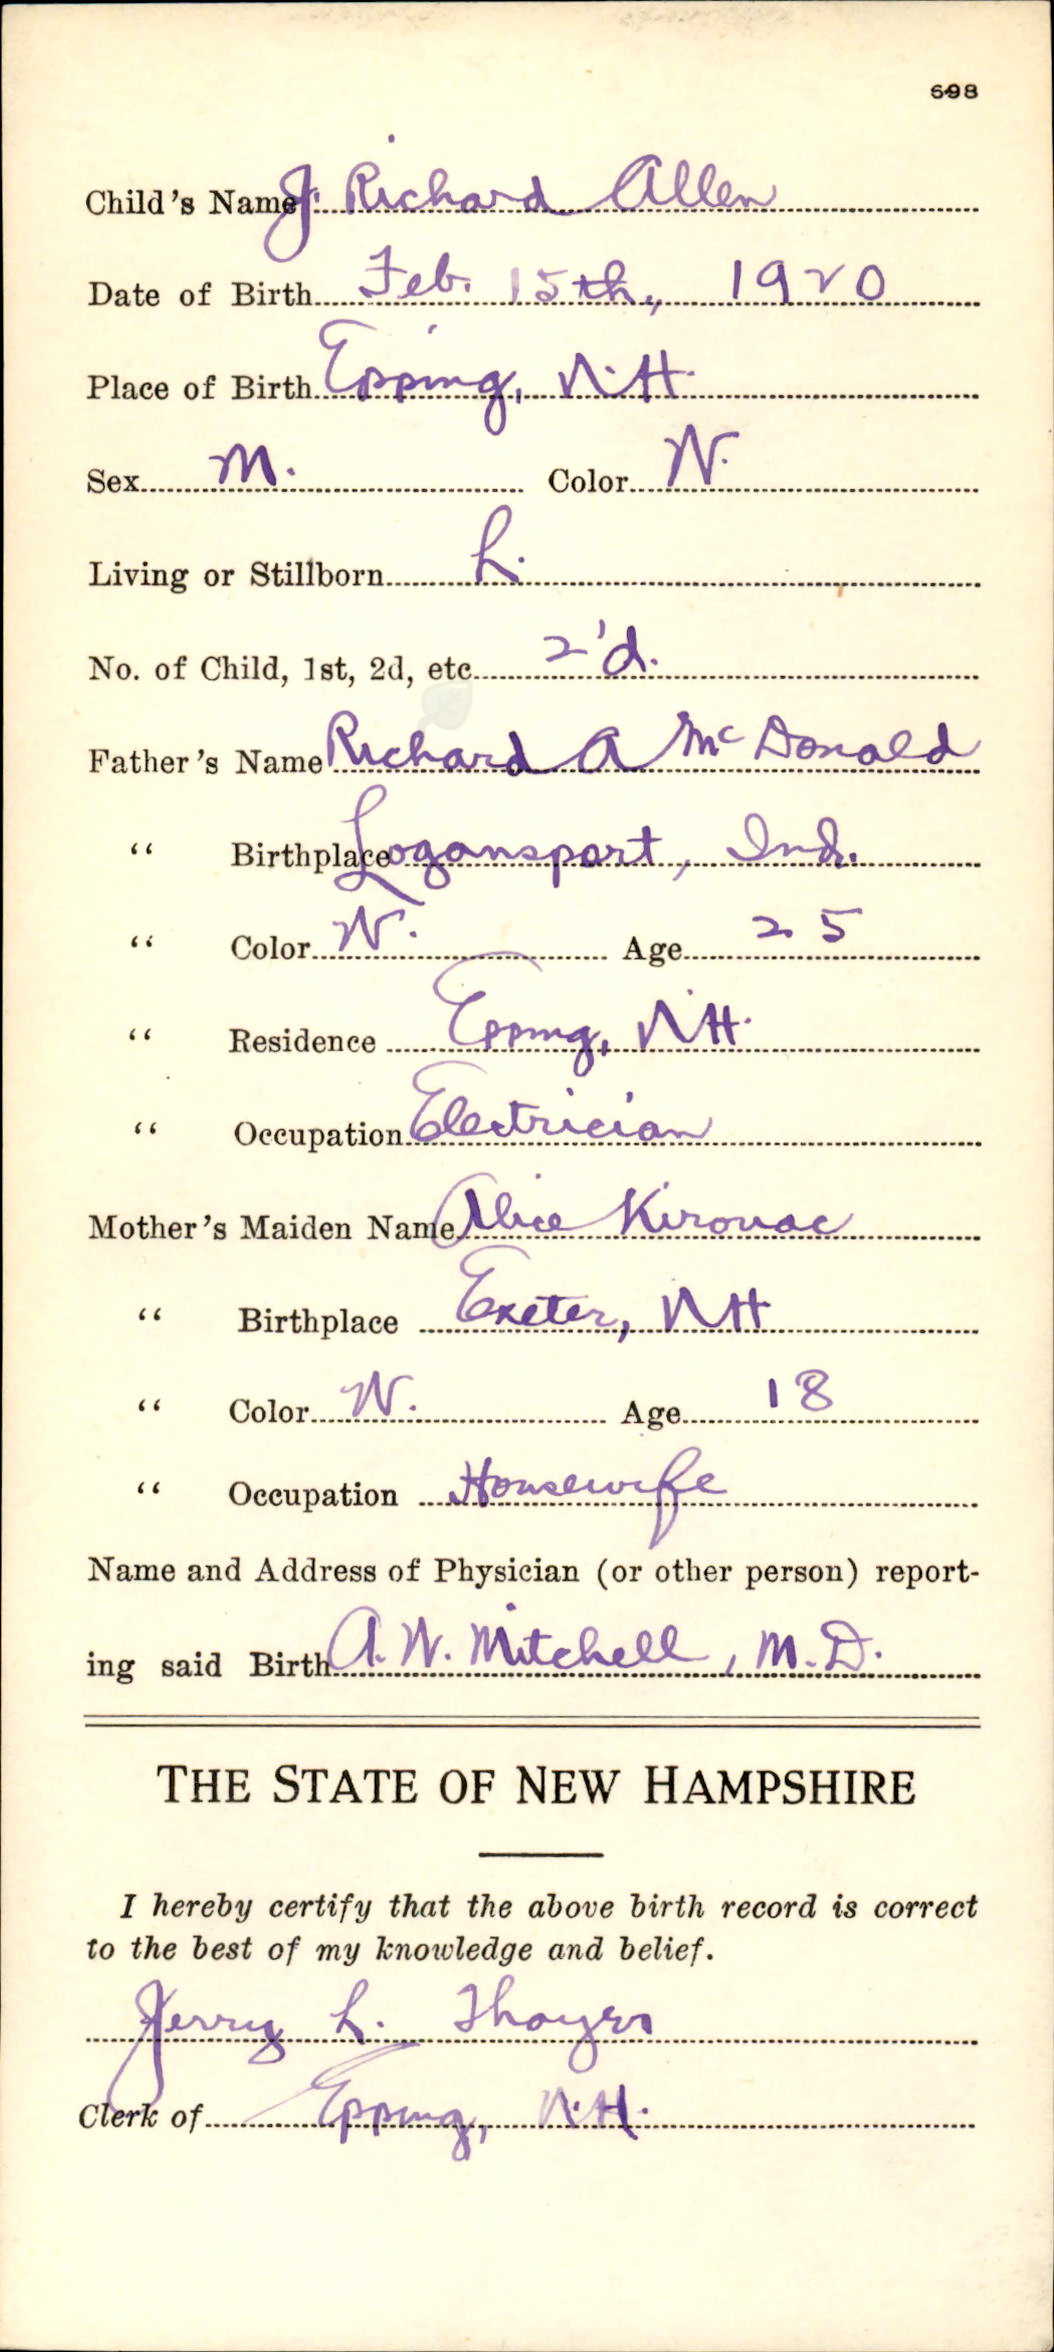 698
Child's Name J. Richard Allen
Date of Birth Feb. 15th, 1920
Place of Birth Epping, N.H.
Sex M. Color W.
Living or Stillborn L.
No. of Child, 1st, 2d, etc. 2'd.
Father's Name Richard A McDonald
“ Birthplace Logansport, Ind.
“ Color W. Age 25
“ Residence Epping, N.H.
“ Occupation Electrician
Mother's Maiden Name Alice Kirouac
“ Birthplace Exeter, NH
“ Color W. Age 18
“ Occupation Housewife
Name and Address of Physician (or other person) report-
ing said Birth A. W. Mitchell, M.D.
THE STATE OF NEW HAMPSHIRE
I hereby certify that the above birth record is correct
to the best of my knowledge and belief.
Jerry L. Thayer
Clerk of Epping, N.H.